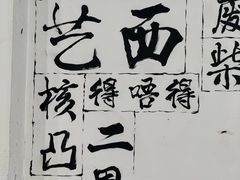 艺
西
核凸
得唔得
二
柴